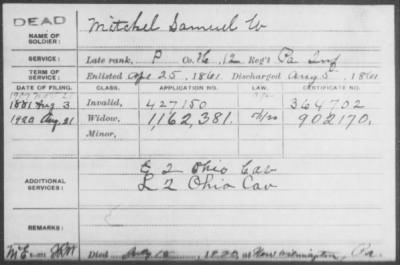 DEAD
NAME OF SOLDIER: Mitchel Samuel W
SERVICE: Late rank, P Co. H, 12 Reg't Pa Inf
TERM OF SERVICE: Enlisted Apr 25, 1861 Discharged Aug 5, 1861
DATE OF FILING. CLASS. APPLICATION NO. LAW. CERTIFICATE NO.
1881 Aug 3 Invalid, 427150 364702
1920 Aug 21 Widow, 1,162,381. 902170.
Minor,
ADDITIONAL SERVICES: E 2 Ohio Cav
L 2 Ohio Cav
REMARKS:
Died Aug 10, 1920, at New Wilmington, Pa.